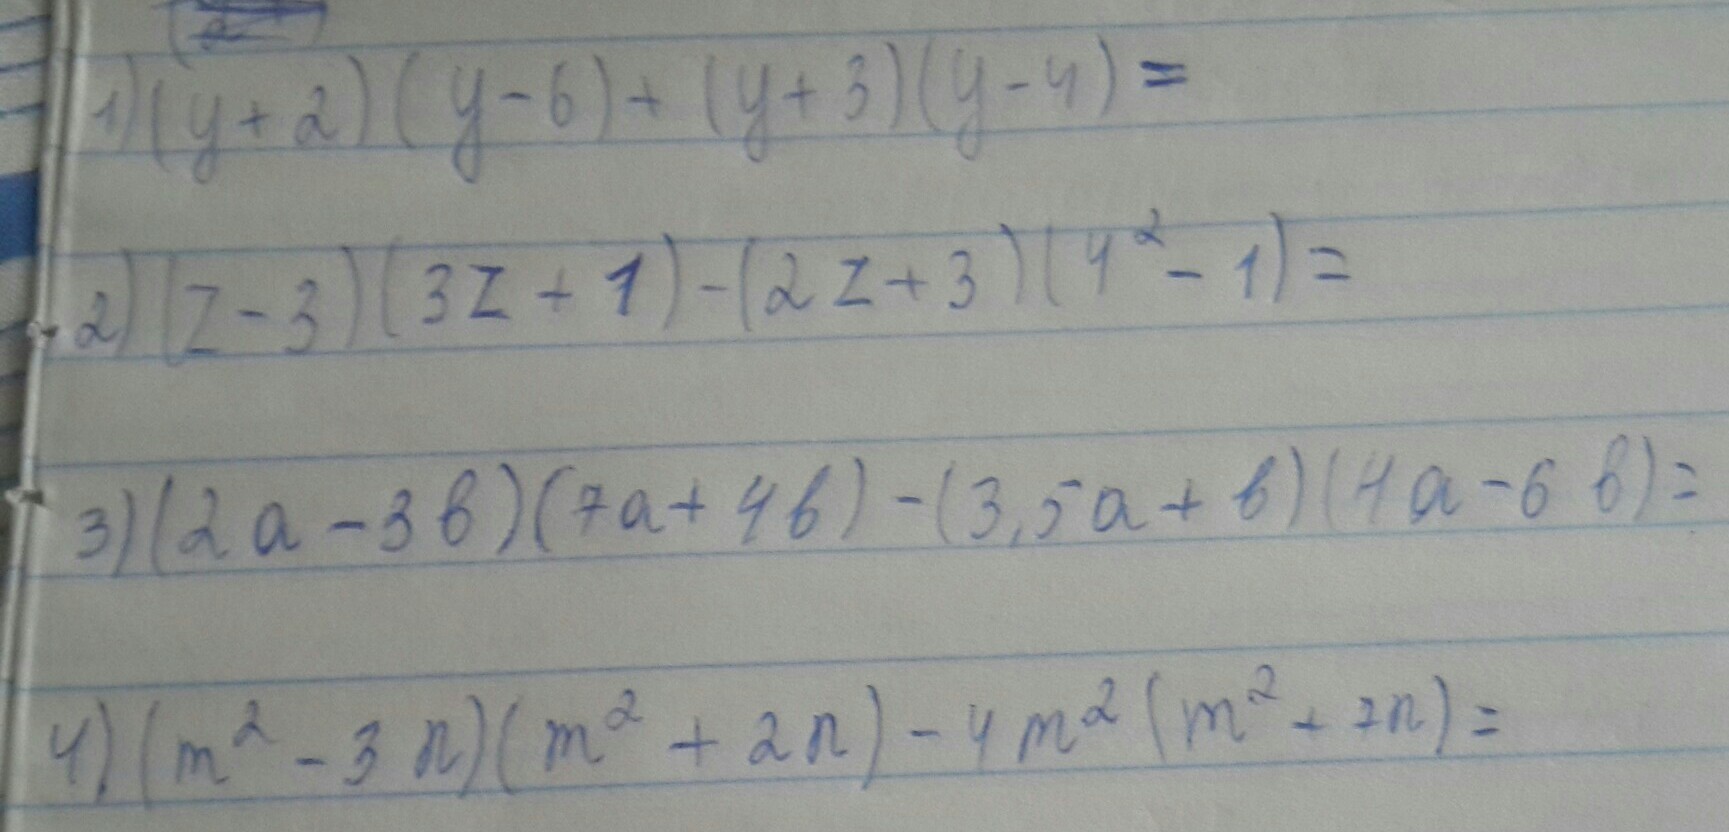 1) (y + 2) (y - 6) + (y + 3) (y - 4) =
2) (z - 3) (3z + 1) - (2z + 3) (4² - 1) =
3) (2a - 3b) (7a + 4b) - (3,5a + b) (4a - 6b) =
4) (m² - 3n) (m² + 2n) - 4m² (m² + 7n) =